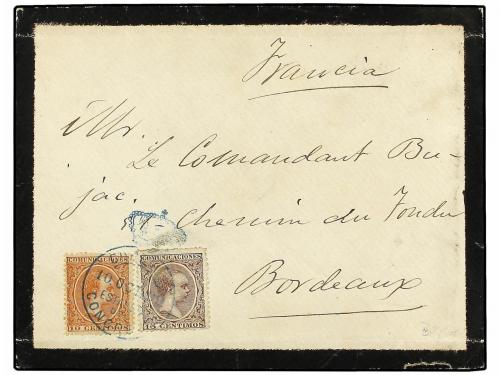 Francia
Mr.
Le Comandant Bu-
jac.
Chemin du Tondu
Bordeaux
COMUNICACIONES
10 CENTIMOS
COMUNICACIONES
15 CENTIMOS
10 OCT